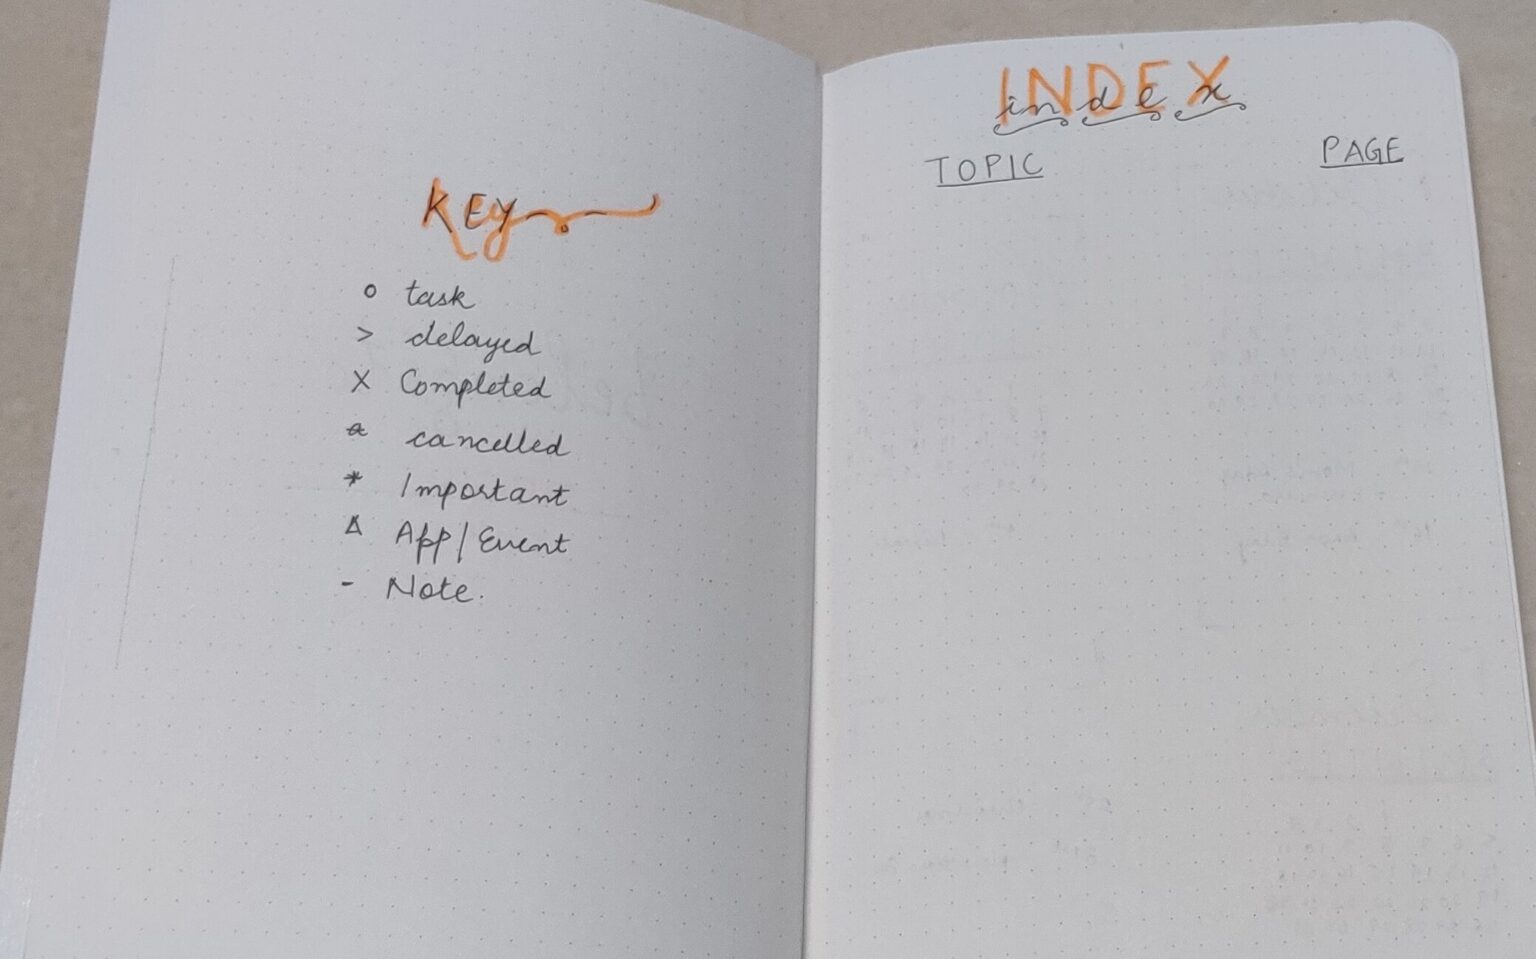 KEY
o task
> delayed
X Completed
cancelled
* Important
Δ App/Event
- Note.
INDEX
index
TOPIC PAGE